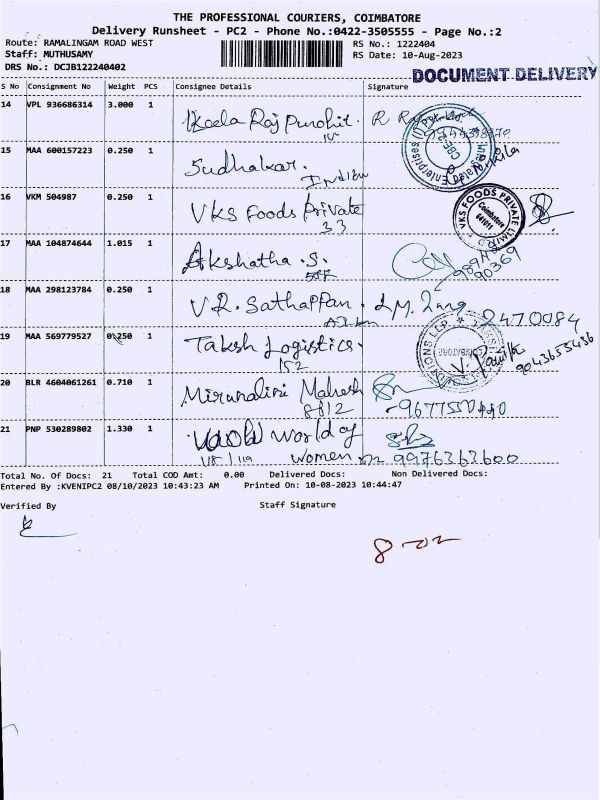 THE PROFESSIONAL COURIERS, COIMBATORE
Delivery Runsheet - PC2 - Phone No.:0422-3505555 - Page No.:2
Route: RAMALINGAM ROAD WEST RS No.: 1222404
Staff: MUTHUSAMY RS Date: 10-Aug-2023
DRS No.: DCJB122240402
DOCUMENT DELIVERY
S No Consignment No Weight PCS Consignee Details Signature
14 VPL 936686314 3.000 1 Keela Raj Purohit.
15 MAA 600157223 0.250 1 Sudhakar.
16 VKM 504987 0.250 1 VKS Foods Private
33
VKS FOODS PRIVATE LIMITED
Coimbatore
641011
17 MAA 104874644 1.015 1 Akshatha .S.
90369
18 MAA 298123784 0.250 1 V.R. Sathappan.
2470084
19 MAA 569779527 0.250 1 Taksh Logistics.
152
9043655436
20 BLR 4604061261 0.710 1 Mirunalini Mahesh
8812
21 PNP 530289802 1.330 1 world of
118/119 women 9976363600
Total No. Of Docs: 21 Total COD Amt: 0.00 Delivered Docs: Non Delivered Docs:
Entered By :KVENIPC2 08/10/2023 10:43:23 AM Printed On: 10-08-2023 10:44:47
Verified By Staff Signature